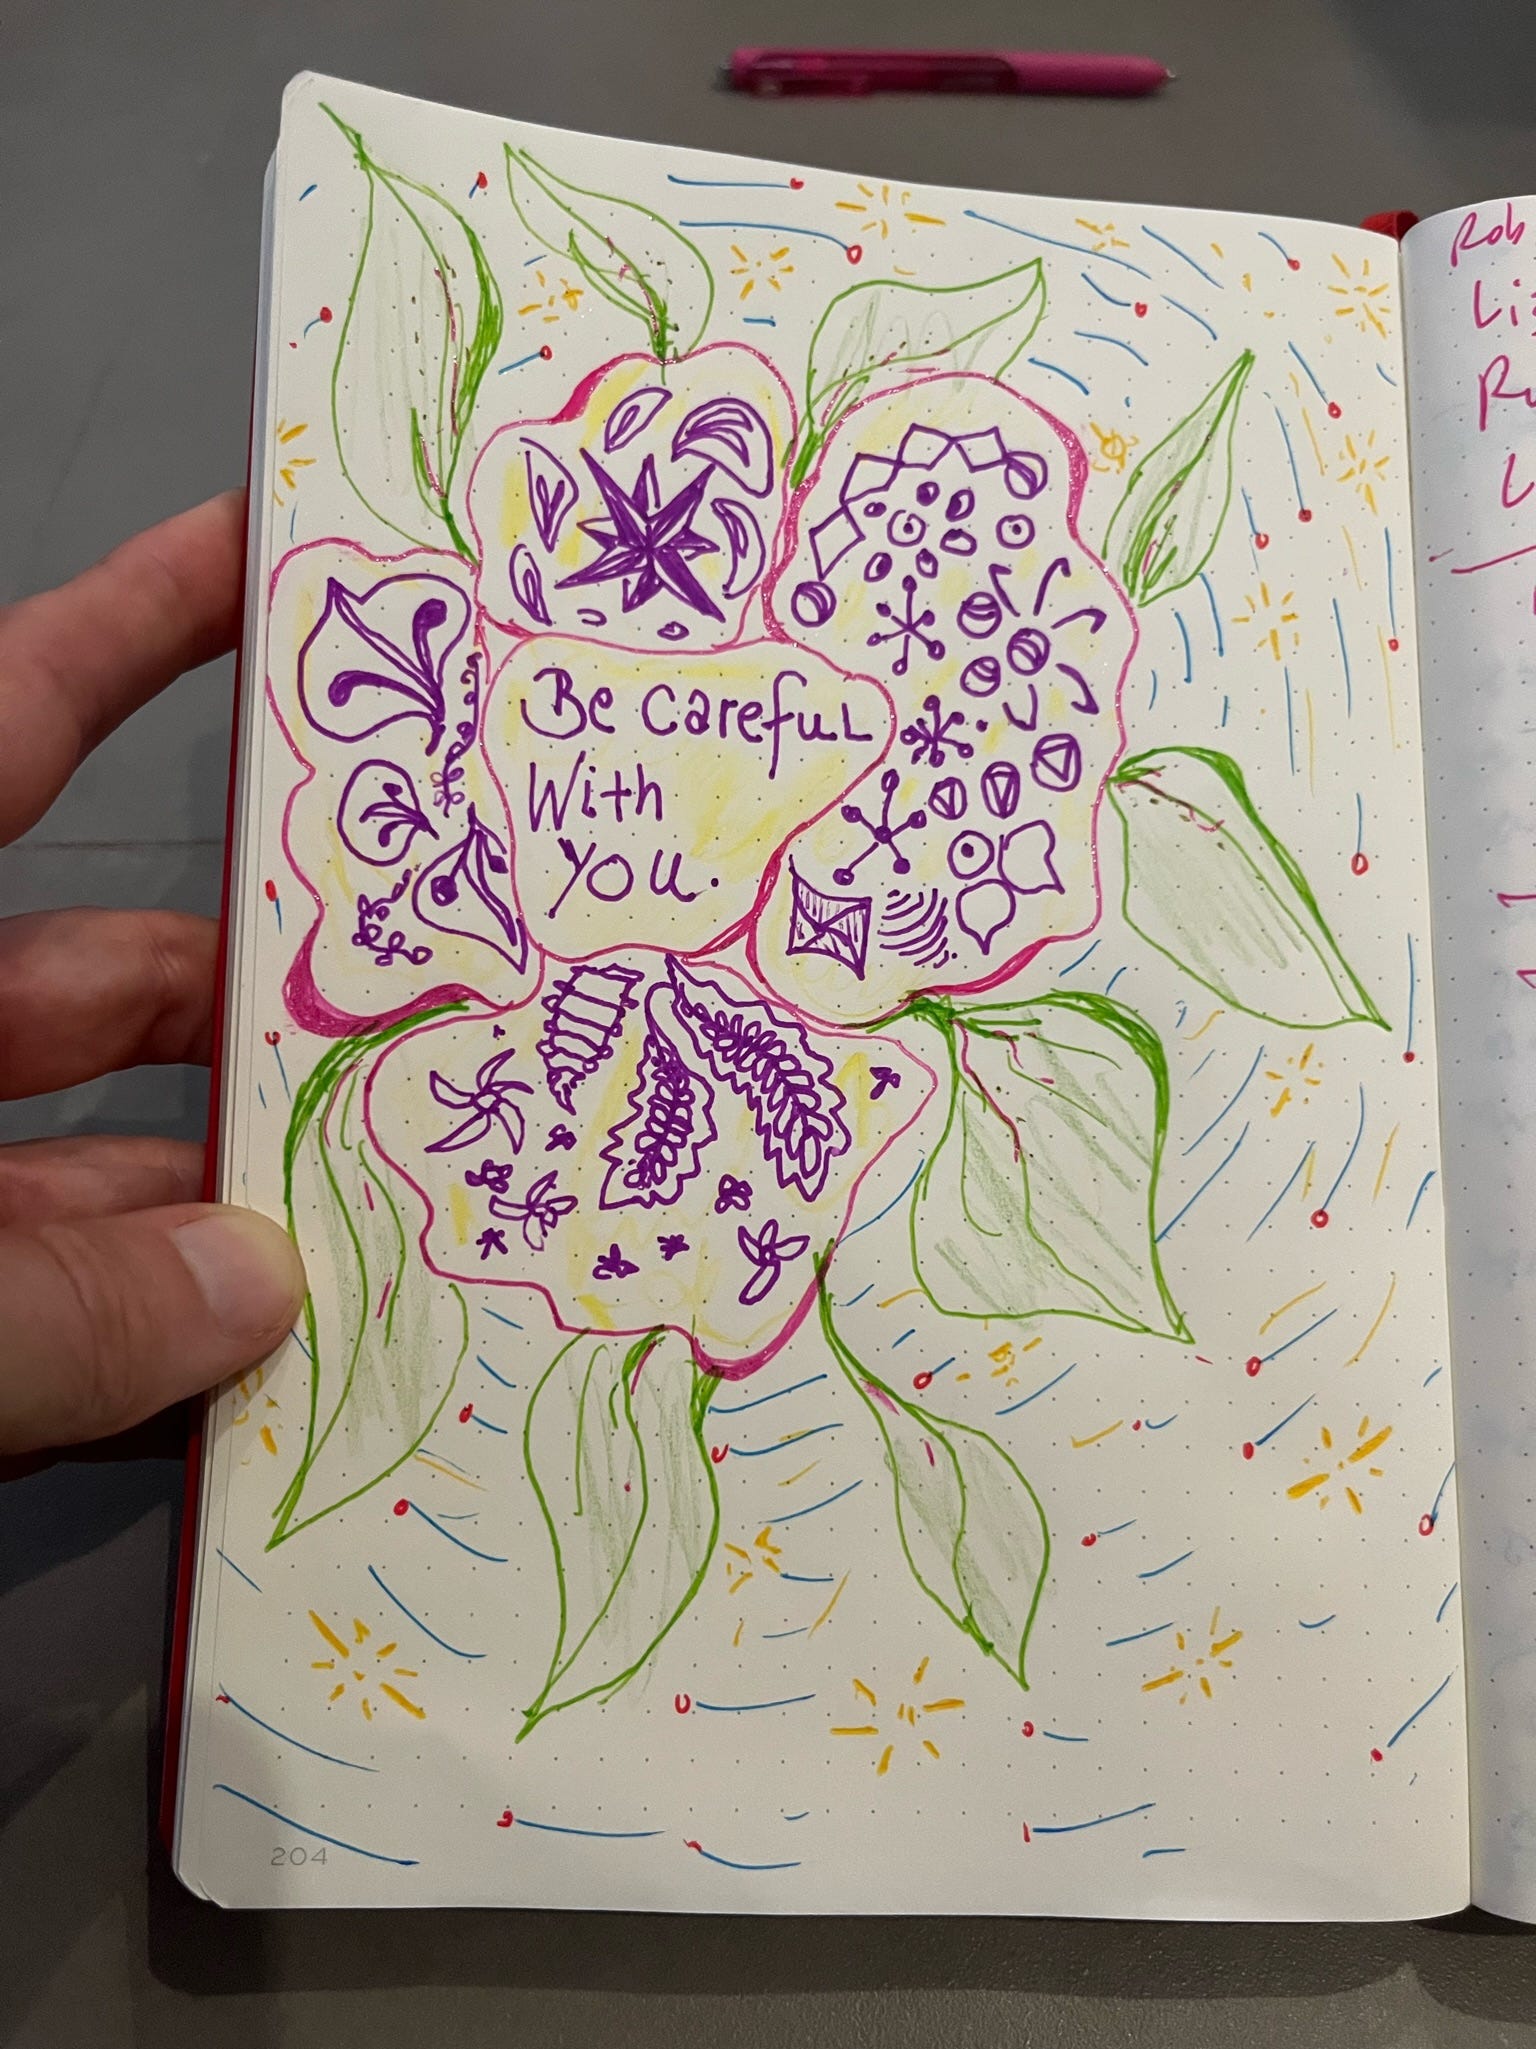 Be careful
With
you.
204
Rob